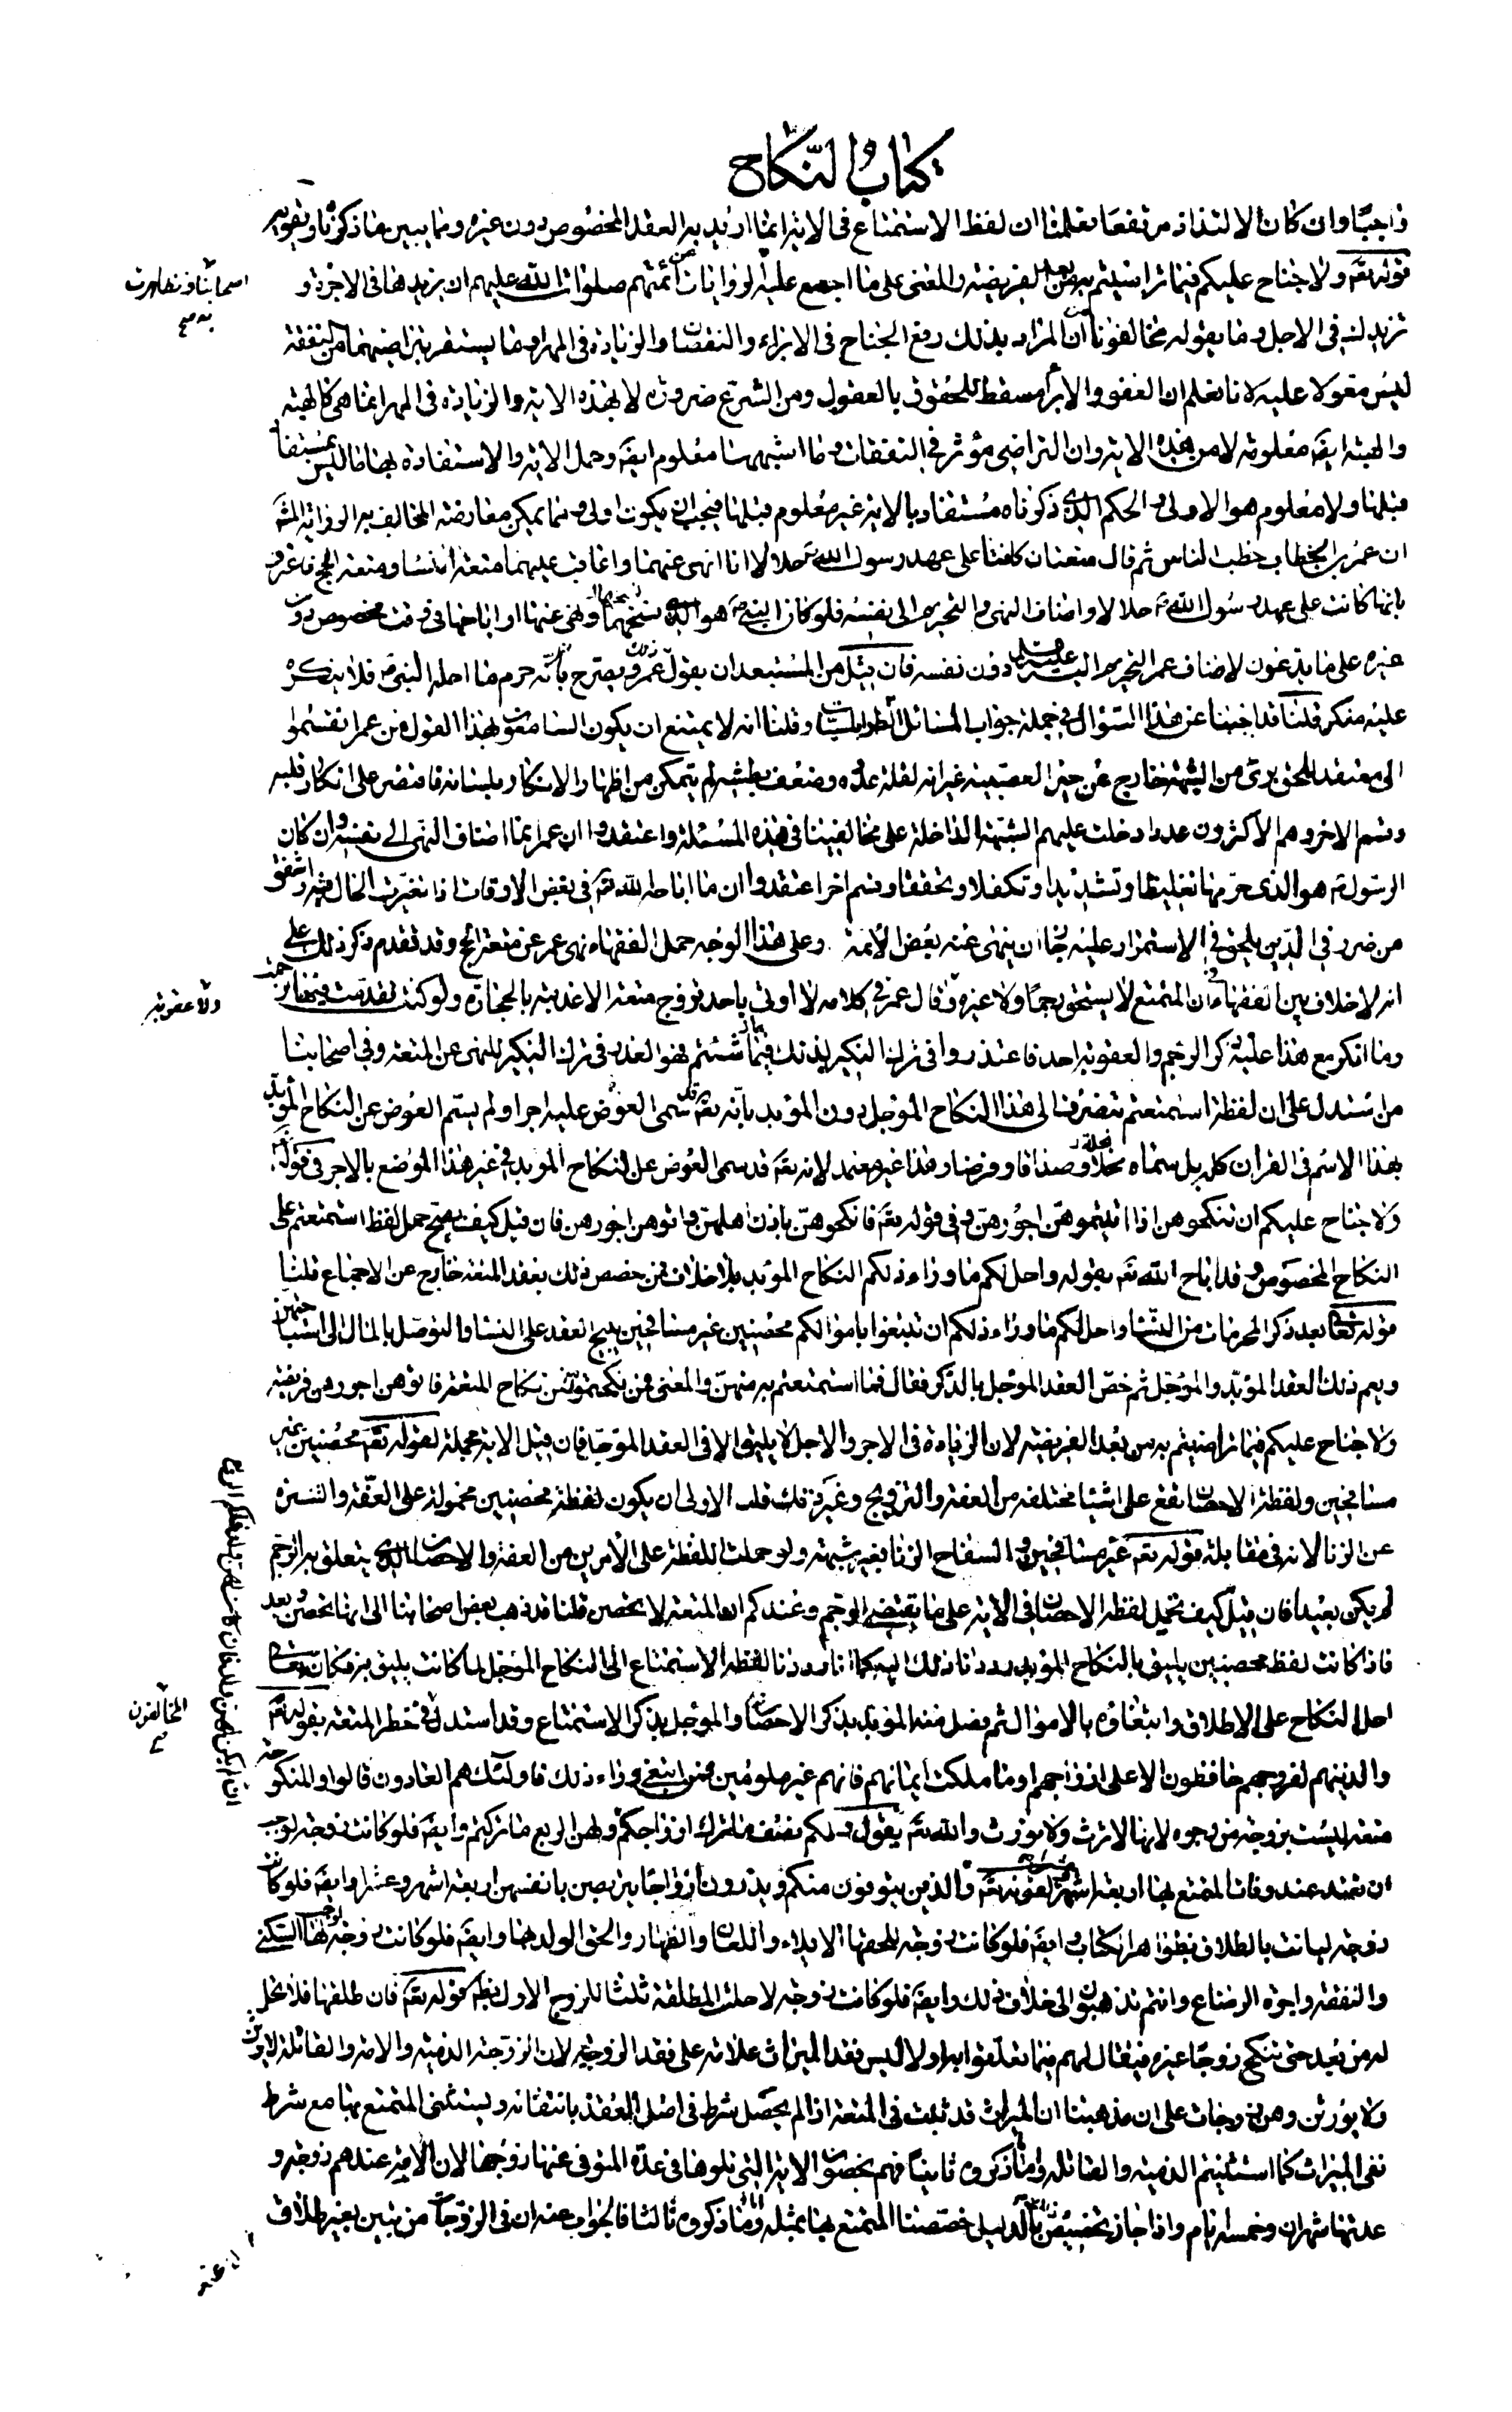 كتاب النكاح
واجبا وان كان الالتذاذ مرتفعا فعلمنا ان لفظ الاستمتاع في الاية انما اريد به العقد المخصوص دون غيره ومما يبين ما ذكرناه ويقويه
قوله تعه ولا جناح عليكم فيما تراضيتم به من بعد الفريضة والمعنى على ما اجمع عليه لروايات عن أئمتهم صلوات الله عليهم ان يزيدها في الاجرة و
تزيد له في الاجل وما يقوله مخالفونا من ان المراد بذلك رفع الجناح في الابراء والنقصان او الزيادة في المهر او ما يستقر بتراضيهما من النفقة
ليس معولا عليه لانا نعلم ان العفو والابراء مسقط للحقوق بالعقول ومن الشرع ضرورة لا بهذه الاية والزيادة في المهر انما هي كالهبة
والهبة ايضه معلومة لا من هذه الاية وان التراضي مؤثر في النفقات وما اشبهها معلوم ايضه وحمل الاية والاستفادة بها ما ليس بمستفاد
قبلها ولا معلوم هو الاولى والحكم الذي ذكرناه مستفاد بالاية غير معلوم قبلها فيجب ان يكون اولى ومما يمكن معارضة المخالف به الرواية المشهـ
ان عمر بن الخطاب خطب الناس ثم قال متعتان كانتا على عهد رسول الله ص حلالا انا انهى عنهما واعاقب عليهما متعة النساء ومتعة الحج فاعترف
بانها كانت على عهد رسول الله ص حلالا واضاف النهي والتحريم الى نفسه فلو كان النبي ص هو الذي نسخهما ونهى عنها او اباحها في وقت مخصوص دون
غيره على ما يدعون لاضاف عمر التحريم اليه عليه السلم دون نفسه فان قيل من المستبعد ان يقول عمر ذلك ويصرح بانه حرم ما احله النبي ص فلا ينكره
عليه منكر قلنا قد اجبنا عن هذا السؤال في جملة جواب المسائل الطرابلسيات وقلنا انه لا يمتنع ان يكون السامعون لهذا القول من عمر انقسموا
الى معتقد للحق برئ من الشبهة خارج عن حيز العصبية غير انه لقلة عدده وضعف بطشه لم يتمكن من اظهار الانكار بلسانه فاقتصر على انكار قلبه
وقسم الاخر وهم الاكثرون عددا دخلت عليهم الشبهة الداخلة على مخالفينا في هذه المسئلة واعتقدوا ان عمر انما اضاف النهي الى نفسه وان كان
الرسول ص هو الذي حرمها تغليظا وتشديدا وتكفلا وتحققا وقسم اخر اعتقدوا ان ما اباحه الله تعه في بعض الاوقات اذا تغيرت الحال فيه واشفق
من ضرر في الدين يلحق في الاستمرار عليه جاز ان ينهى عنه بعض الائمة وعلى هذا الوجه حمل الفقهاء نهى عمر عن متعة الحج وقد تقدم ذكر ذلك على
انه لا خلاف بين الفقهاء في ان المتمتع لا يستحق رجما ولا غيره وقال عمر في كلامه لا اوتى باحد تزوج متعة الا عذبته بالحجارة ولو كنت تقدمت فيها لرجمت
وما انكر مع هذا عليه ذكر الرجم والعقوبة احد فاعتذروا في ترك النكير لذلك بما شئتم فهو العذر في ترك النكير للنهي عن المتعة وفي اصحابنا
من استدل على ان لفظة استمتعتم تنصرف الى هذا النكاح المؤجل دون المؤبد بانه تعه سمى العوض عليه اجرا ولم يسم العوض عن النكاح المؤبد
بهذا الاسم في القران كله بل سماه نحلة وصداقا وفرضا وهذا غير معتمد لانه تعه قد سمى العوض عن النكاح المؤبد في غير هذا الموضع بالاجر في قوله تعه
ولا جناح عليكم ان تنكحوهن اذا اتيتموهن اجورهن وفي قوله تعه فانكحوهن باذن اهلهن واتوهن اجورهن فان قيل كيف يصح حمل لفظ استمتعتم على
النكاح المخصوص وقد اباح الله تعه بقوله واحل لكم ما وراء ذلكم النكاح المؤبد بلا خلاف فمن خصص ذلك بعقد المتعة خارج عن الاجماع قلنا
قوله تعا بعد ذكر المحرمات من النساء واحل لكم ما وراء ذلكم ان تبتغوا باموالكم محصنين غير مسافحين يبيح العقد على النساء والتوصل بالمال الى استباحتهن
ويعم ذلك العقد المؤبد والمؤجل ثم خص العقد المؤجل بالذكر فقال فما استمتعتم به منهن والمعنى فمن نكحتموهن نكاح المتعة فاتوهن اجورهن فريضة
ولا جناح عليكم فيما تراضيتم به من بعد الفريضة لان الزيادة في الاجر والاجل لا يليق الا في العقد المؤجل فان قيل الاية مجملة لقوله تعه محصنين غير
مسافحين ولفظة الاحصان يقع على اشياء مختلفة من العفة والتزويج وغير ذلك قلنا الاولى ان يكون لفظة محصنين محمولة على العفة والتنزه
عن الزنا لانه في مقابلة قوله تعه غير مسافحين والسفاح الزنا بغير شبهة ولو حملت اللفظة على الامرين من العفة والاحصان الذي يتعلق به الرجم
لم يكن بعيدا فان قيل كيف تحمل لفظة الاحصان في الاية على ما يقتضي الرجم وعندكم ان المتعة لا تحصن قلنا قد ذهب بعض اصحابنا الى انها تحصن وبعد
فاذا كانت لفظ محصنين يليق بالنكاح المؤبد رددنا ذلك اليه كما انا رددنا لفظة الاستمتاع الى النكاح المؤجل لما كانت يليق به فكانه تعا
احل النكاح على الاطلاق وابتغاؤه بالاموال ثم فصل منه المؤبد بذكر الاحصان والمؤجل بذكر الاستمتاع وقد استدل في حظر المتعة بقوله تعه
والذين هم لفروجهم حافظون الا على ازواجهم او ما ملكت ايمانهم فانهم غير ملومين فمن ابتغى وراء ذلك فاولئك هم العادون قالوا والمنكوحة
متعة ليست بزوجة من وجوه لانها لا ترث ولا تورث والله تعه يقول ولكم نصف ما ترك ازواجكم ولهن الربع مما تركتم وايضه فلو كانت زوجة لوجب
ان تعتد عند وفاة المتمتع بها اربعة اشهر وعشرا لقوله تعه والذين يتوفون منكم ويذرون ازواجا يتربصن بانفسهن اربعة اشهر وعشرا وايضه فلو كانت
زوجة لبانت بالطلاق بظواهر الكتاب وايضه فلو كانت زوجة للحقها الايلاء واللعان والظهار والحق الولد بها وايضه فلو كانت زوجة لوجب لها السكنى
والنفقة واجرة الرضاع وانتم تذهبون الى خلاف ذلك وايضه فلو كانت زوجة لاحلت المطلقة ثلثا للزوج الاول بظاهر قوله تعه فان طلقها فلا تحل
له من بعد حتى تنكح زوجا غيره فيقال لهم فيما تعلقوا به اولا ليس فقد الميراث علامة على فقد الزوجية لان الزوجة الذمية والامة والقاتلة لا يرثن
ولا يورثن وهن زوجات على ان مذهبنا ان الميراث قد يثبت في المتعة اذا لم يحصل شرط في اصل العقد بانتفائه ويستثنى المتمتع بها مع شرط
نفي الميراث كما استثنيتم الذمية والقاتلة واما ما ذكروه ثانيا فهم يخصون الاية التي تلوها في عدة المتوفى عنها زوجها لان الامة عندهم زوجة و
عدتها شهران وخمسة ايام واذا جاز تخصيص ذلك بالدليل خصصنا المتمتع بها بمثله واما ما ذكروه ثالثا فالجواب عنه ان في الزوجات من تبين بغير طلاق
ولا عقوبة
المخالفون
صح